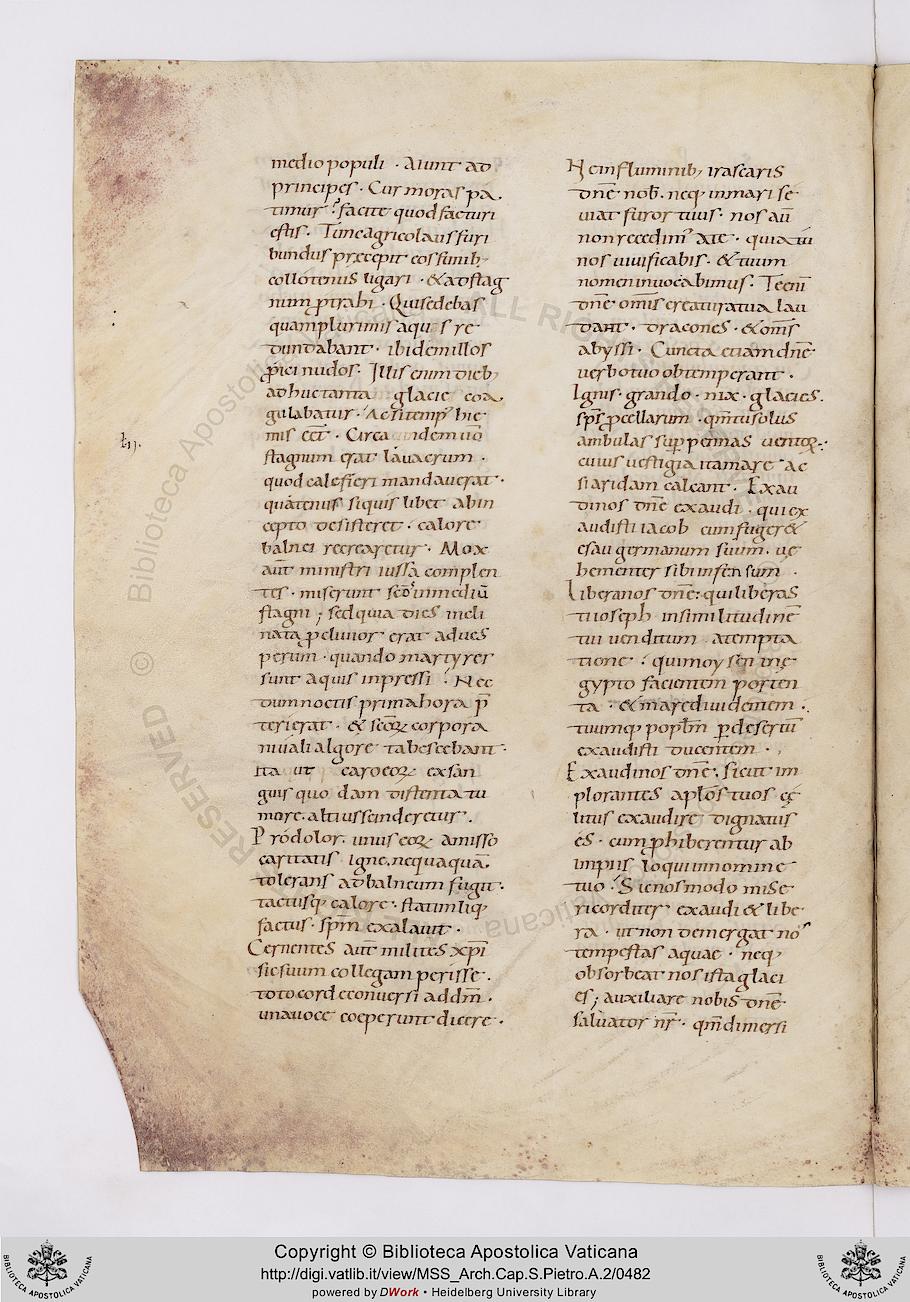 medio populi · Aiunt ad
principes · Cur moras pa
timur? facite quod facturi
estis · Tunc agricolaus furi
bundus precepit eos funib;
collotenus ligari · & ad stag
num ꝓtrahi · Qui sedebas
quamplurimis aquis re
dundabant · ibidem illos
ꝓici nudos · Illis enim dieb;
adhuc tanta glacie coa
gulabatur · Ac si temp hie
mis eēt · Circa
stagnum erat lavacrum ·
quod calefieri mandaverat ·
quátenus siquis libet abin
cepto desisteret · calore
balnei recrearetur · Mox
aūt ministri iussa complen
tes · miserunt scōs in mediū
stagni ; sed quia dies incli
nata ꝓelivior erat ad ves
perum · quando martyres
sunt aquis inpressi ! Nec
dum noctis prima hora p̄
terierat · & scōꝝ corpora
nivali algore tabescebant ·
Ita ut caro eoꝝ exsan
guis quodam distenta tu
more · altius scinderetur ·
Pródolor · unus eoꝝ amisso
caritatis igne · nequaquā
tolerans ad balneum fugit ·
tactusq; calore · statimliq;
factus · spm̄ exalavit ·
Cernentes aūt milites xp̄i
sic suum collegam perisse ·
toto corde conversi ad dm̄ ·
una voce coeperunt dicere ·
Ne in fluminib; irascaris
dnē nob · neq; in mari se
viat furor tuus · nos aū
non recedim' a te · quia tu
nos vivificabis · & tuum
nomen invocabimus · Te enī
dnē omīs creatura tua lau
dant · dracones · & oms̄
abyssi · Cuncta etiam dnē
verbo tuo obtemperant ·
Ignis · grando · nix · glacies ·
sps̄ ꝓcellarum · qm̄ tu solus
ambulas suꝑ pennas ventoꝝ ·:
cuius vestigia ita mare ac
si aridam calcant · Exau
di nos dnē exaudi · qui ex
audisti iacob cum fuger&
esau germanum suum · ve
hementer sibi infensum ·
Libera nos dnē : qui liberas
ti ioseph in similitudinē
tui venditum a tempta
tione ! qui moysen in ę
gypto facientem porten
ta · & mare dividentem ·
tuumq; poplm̄ ꝑ desertū
exaudisti ducentem ·
Exaudi nos dnē · sicut im
plorantes aplōs tuos cę
litus exaudire dignatus
es · cum ꝓhiberentur ab
impiis loqui in nomine
tuo ! Sic nos modo mise
ricorditer exaudi & libe
ra · ut non demergat nos
tempestas aquae · neq;
obsorbeat nos ista glaci
es ; auxiliare nobis dnē
salvator nr̄ · qm̄ dimersi
Copyright © Biblioteca Apostolica Vaticana
http://digi.vatlib.it/view/MSS_Arch.Cap.S.Pietro.A.2/0482
powered by DWork • Heidelberg University Library